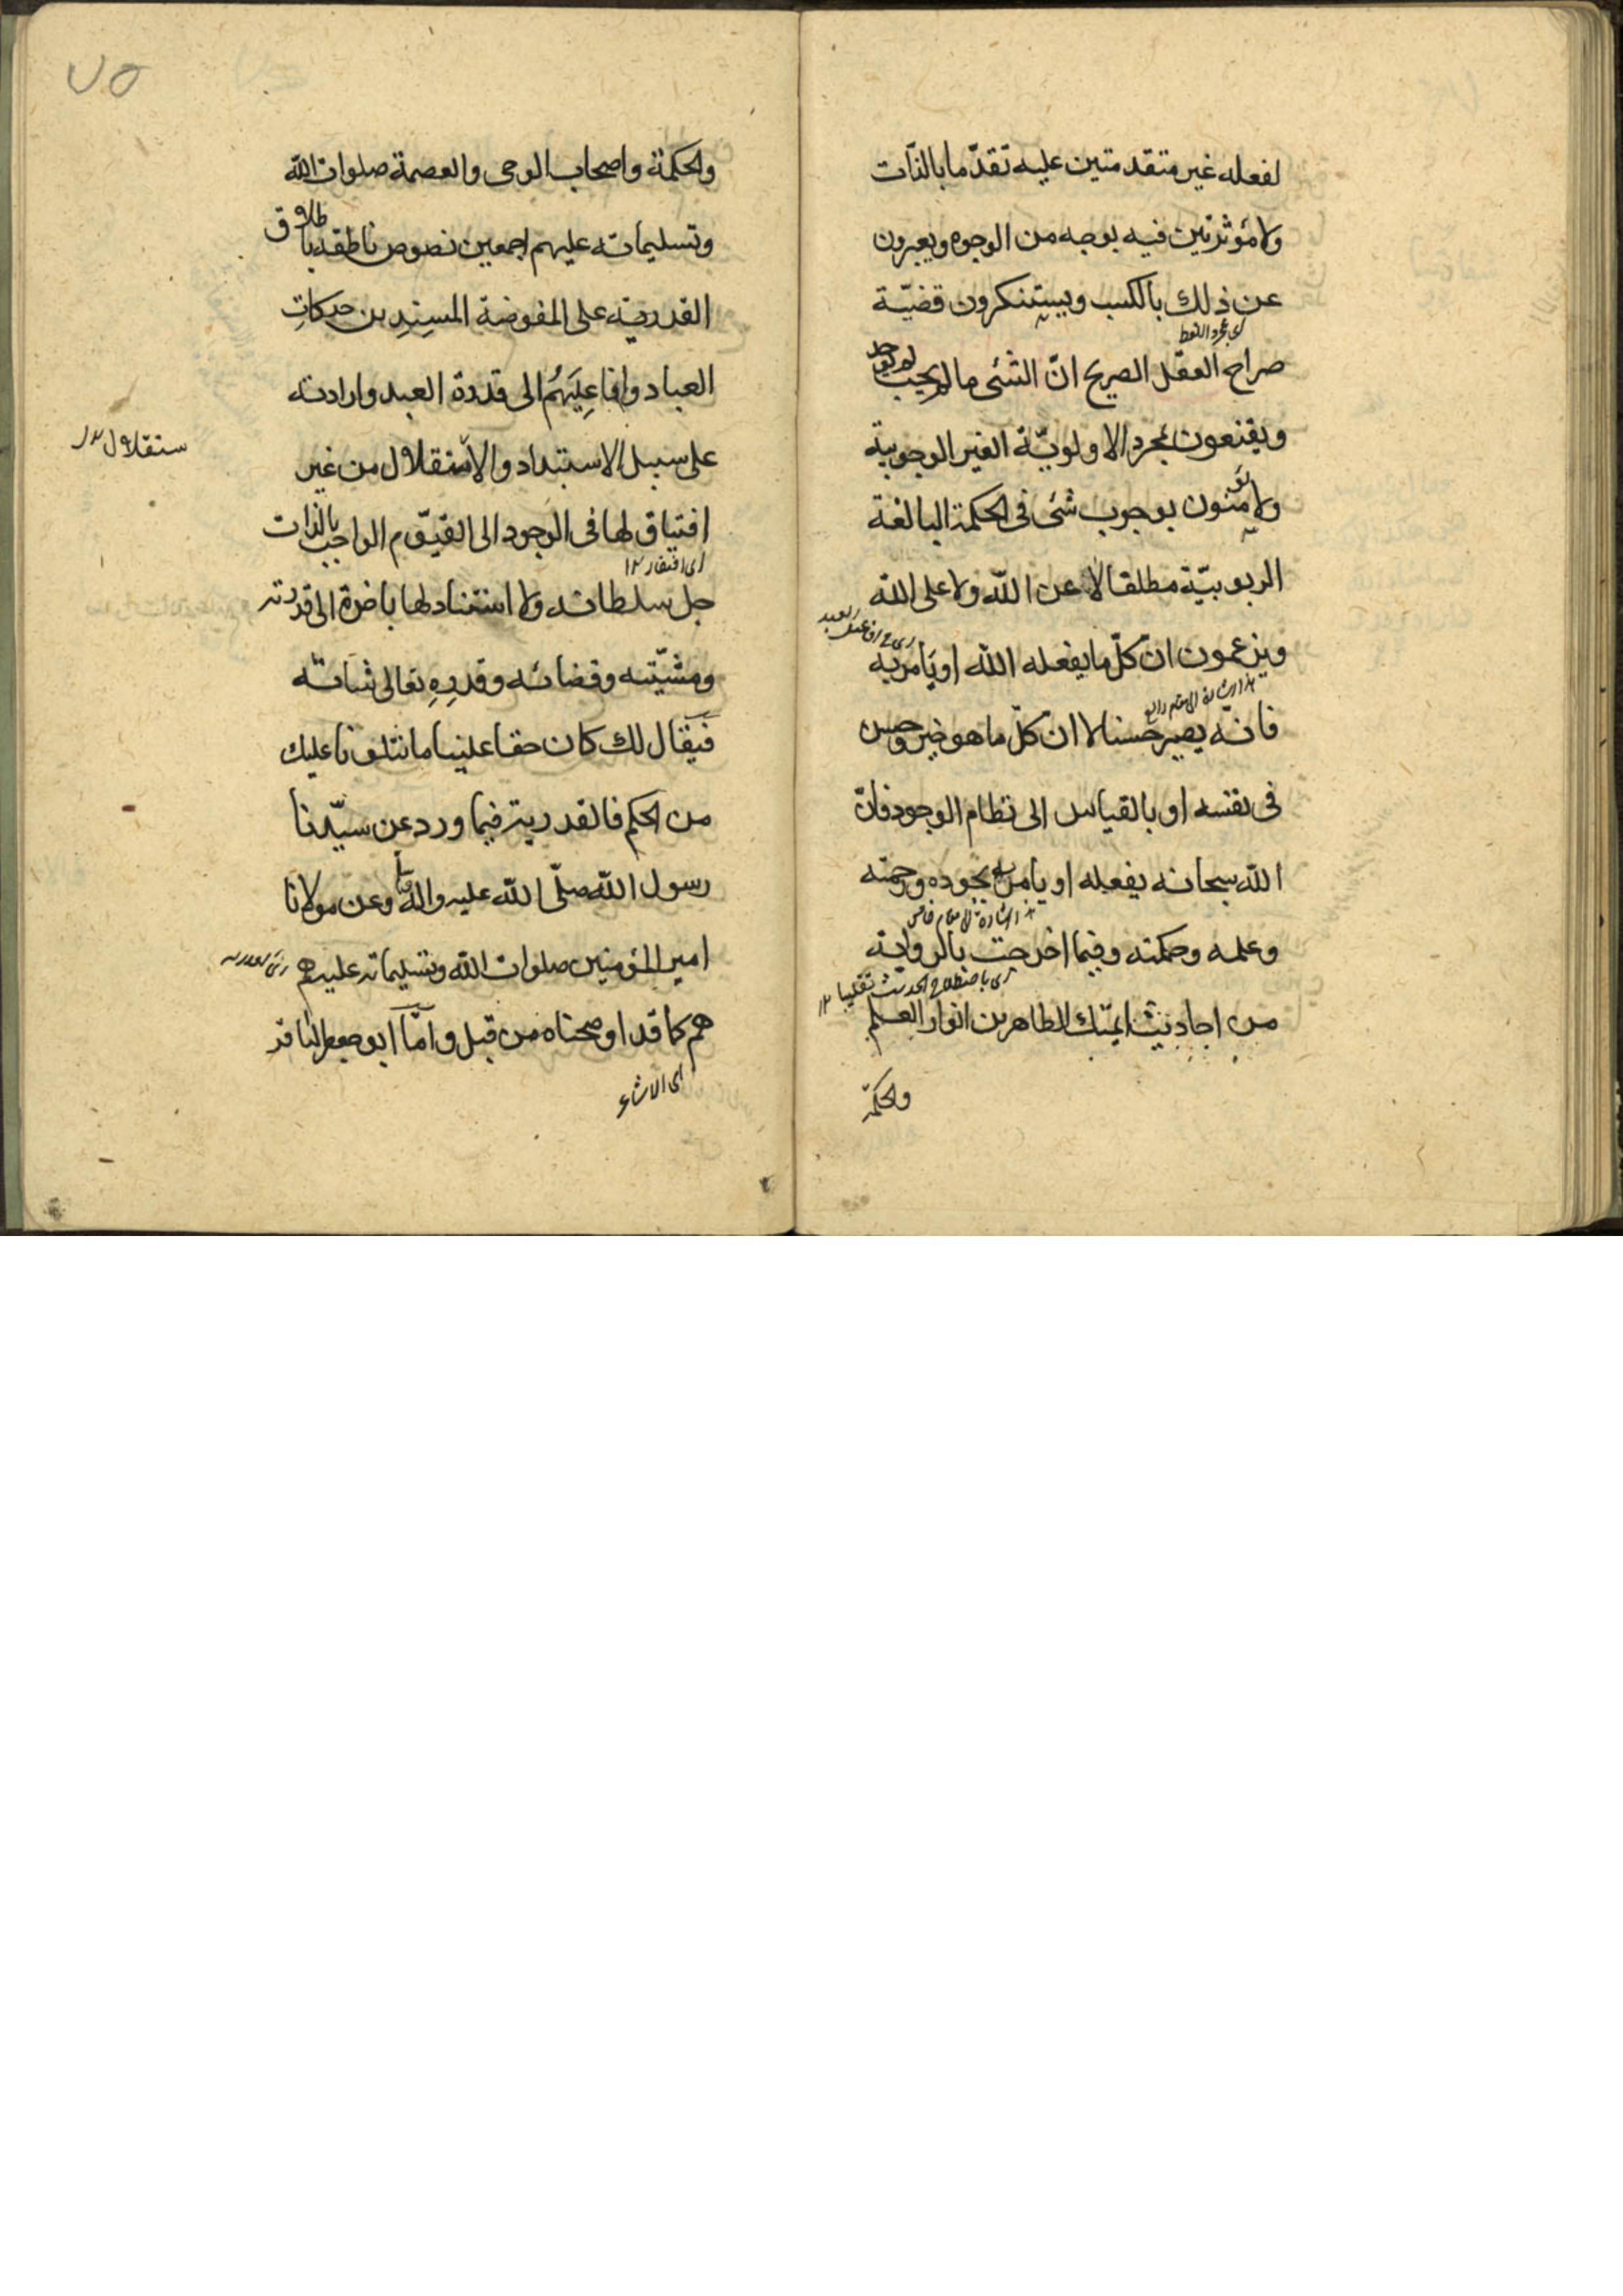 لفعله غير متقدمتين عليه تقدّما بالذّات
ولا مؤثرتين فيه بوجه من الوجوه ويعبرون
عن ذلك بالكسب ويستنكرون قضيّة
صراح العقل الصريح انّ الشئ ما لم يجب لم يوجد
ويقنعون بمجرد الاولويّة الغير الوجوبية
ولا يؤمنون بوجوب شئ فى الحكمة البالغة
الربوبيّة مطلقا لا عن الله ولا على الله
ويزعمون ان كلّ ما يفعله الله او يأمر به
هذا اشارة الى مقام رابع
فانه يصير حسنا لا ان كلّ ما هو خير وحسن
فى نفسه او بالقياس الى نظام الوجود فانّ
الله سبحانه يفعله او يأمر به بجوده ورحمته
هذا اشارة الى مقام خامس
وعلمه وحكمته وفيما اخرجت بالرواية
من احاديث ايمّتك الطاهرين انوار العلم
والحكمة
٧٥
والحكمة واصحاب الوحى والعصمة صلوات الله
وتسليماته عليهم اجمعين نصوص ناطقه باطلاق
القدرية على المفوضة المسندين حركات
العباد وافاعيلهم الى قدرة العبد وارادته
على سبيل الاستبداد والاستقلال من غير
ستقلال
افتياق لها فى الوجود الى القيّوم الواجب بالذات
اى افتقار ١٢
جل سلطانه ولا استناد لها باخرة الى قدرته
ومشيّته وقضائه وقدره تعالى شانه
فيقال لك كان حقا علينا ما نتلونا عليك
من الحكم فالقدرية فيما ورد عن سيّدنا
رسول الله صلّى الله عليه واله وسلم وعن مولانا
امير المؤمنين صلوات الله وتسليماته عليهم
هم كما قد اوضحناه من قبل وامّا ابو جعفر الباقر
اى الاشاعرة